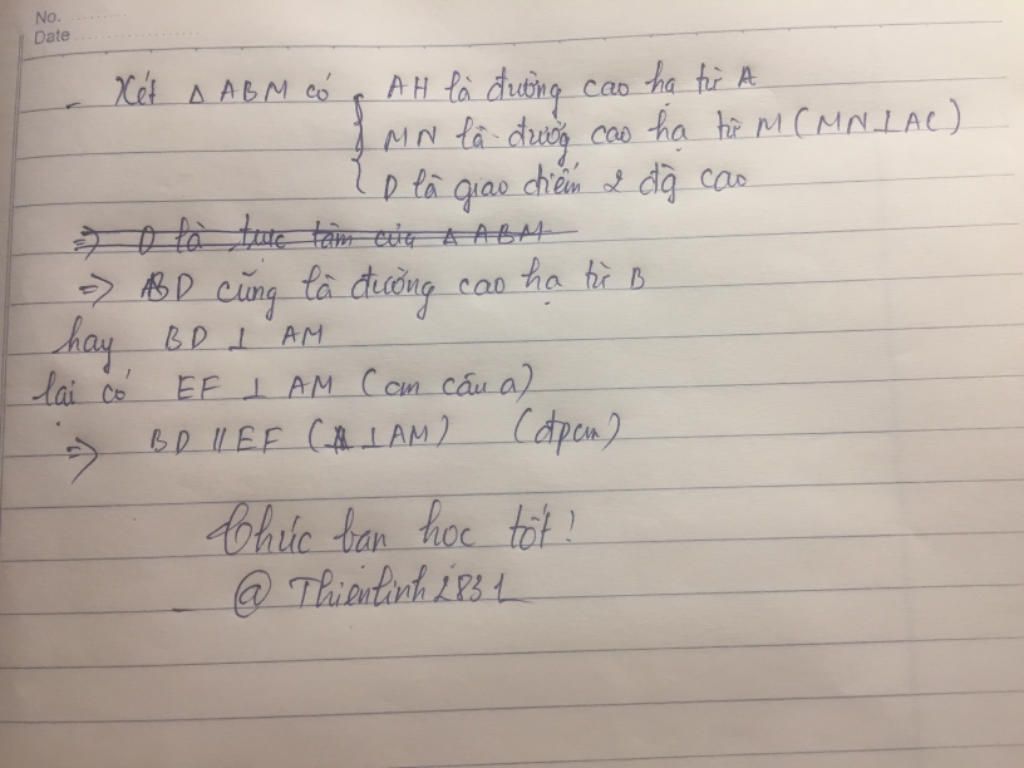 No. ............
Date ........................
- Xét Δ ABM có { AH là đường cao hạ từ A
MN là đường cao hạ từ M (MN⊥AC)
D là giao điểm 2 đg cao
=> D là trực tâm của Δ ABM
=> BD cũng là đường cao hạ từ B
hay BD ⊥ AM
lại có EF ⊥ AM (cm câu a)
=> BD // EF (⊥AM) (đpcm)
Chúc bạn học tốt!
@ Thientinh2831